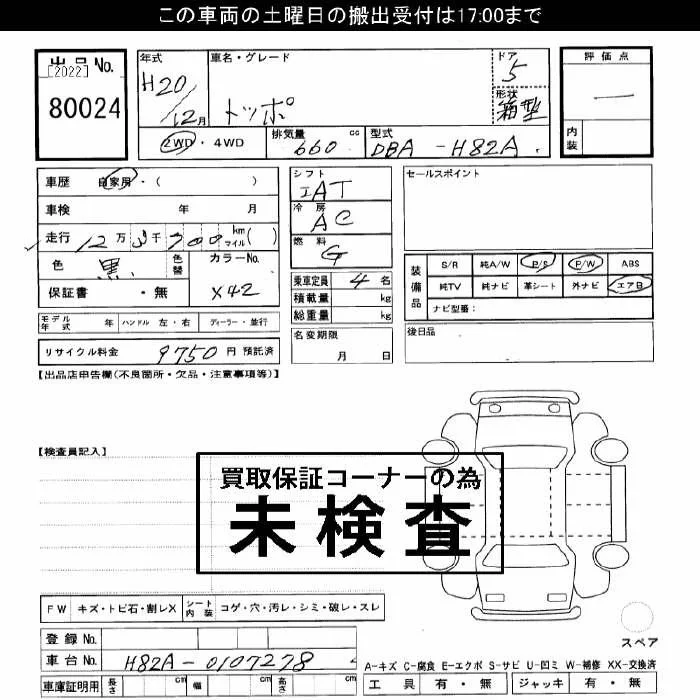 この車両の土曜日の搬出受付は17:00まで
出品No.
[2022]
80024
年式
H20/12月
車名・グレード
トッポ
ドア
5
形状
箱型
2WD・4WD
排気量 660 cc
型式 DBA-H82A
評価点
—
内装
車歴 自家用・( )
車検 年 月
走行 12万3千300 km マイル( )
色 黒
色替
カラーNo.
X42
保証書 ・無
モデル年式 年 ハンドル 左・右 ディーラー・並行
リサイクル料金 9750 円 預託済
シフト
IAT
冷房
AC
燃料
G
乗車定員 4 名
積載量 kg
総重量 kg
名変期限
月 日
セールスポイント
装備品
S/R 純A/W P/S P/W ABS
純TV 純ナビ 革シート 外ナビ エアB
ナビ型番:
後日品
【出品店申告欄(不良箇所・欠品・注意事項等)】
【検査員記入】
買取保証コーナーの為
未検査
FW キズ・トビ石・割レX シート内装 コゲ・穴・汚レ・シミ・破レ・スレ
登録No.
車台No. H82A-0107278
車庫証明用 長さ cm 幅 cm 高さ cm
スペア
A-キズ C-腐食 E-エクボ S-サビ U-凹ミ W-補修 XX-交換済
工具 有・無 ジャッキ 有・無